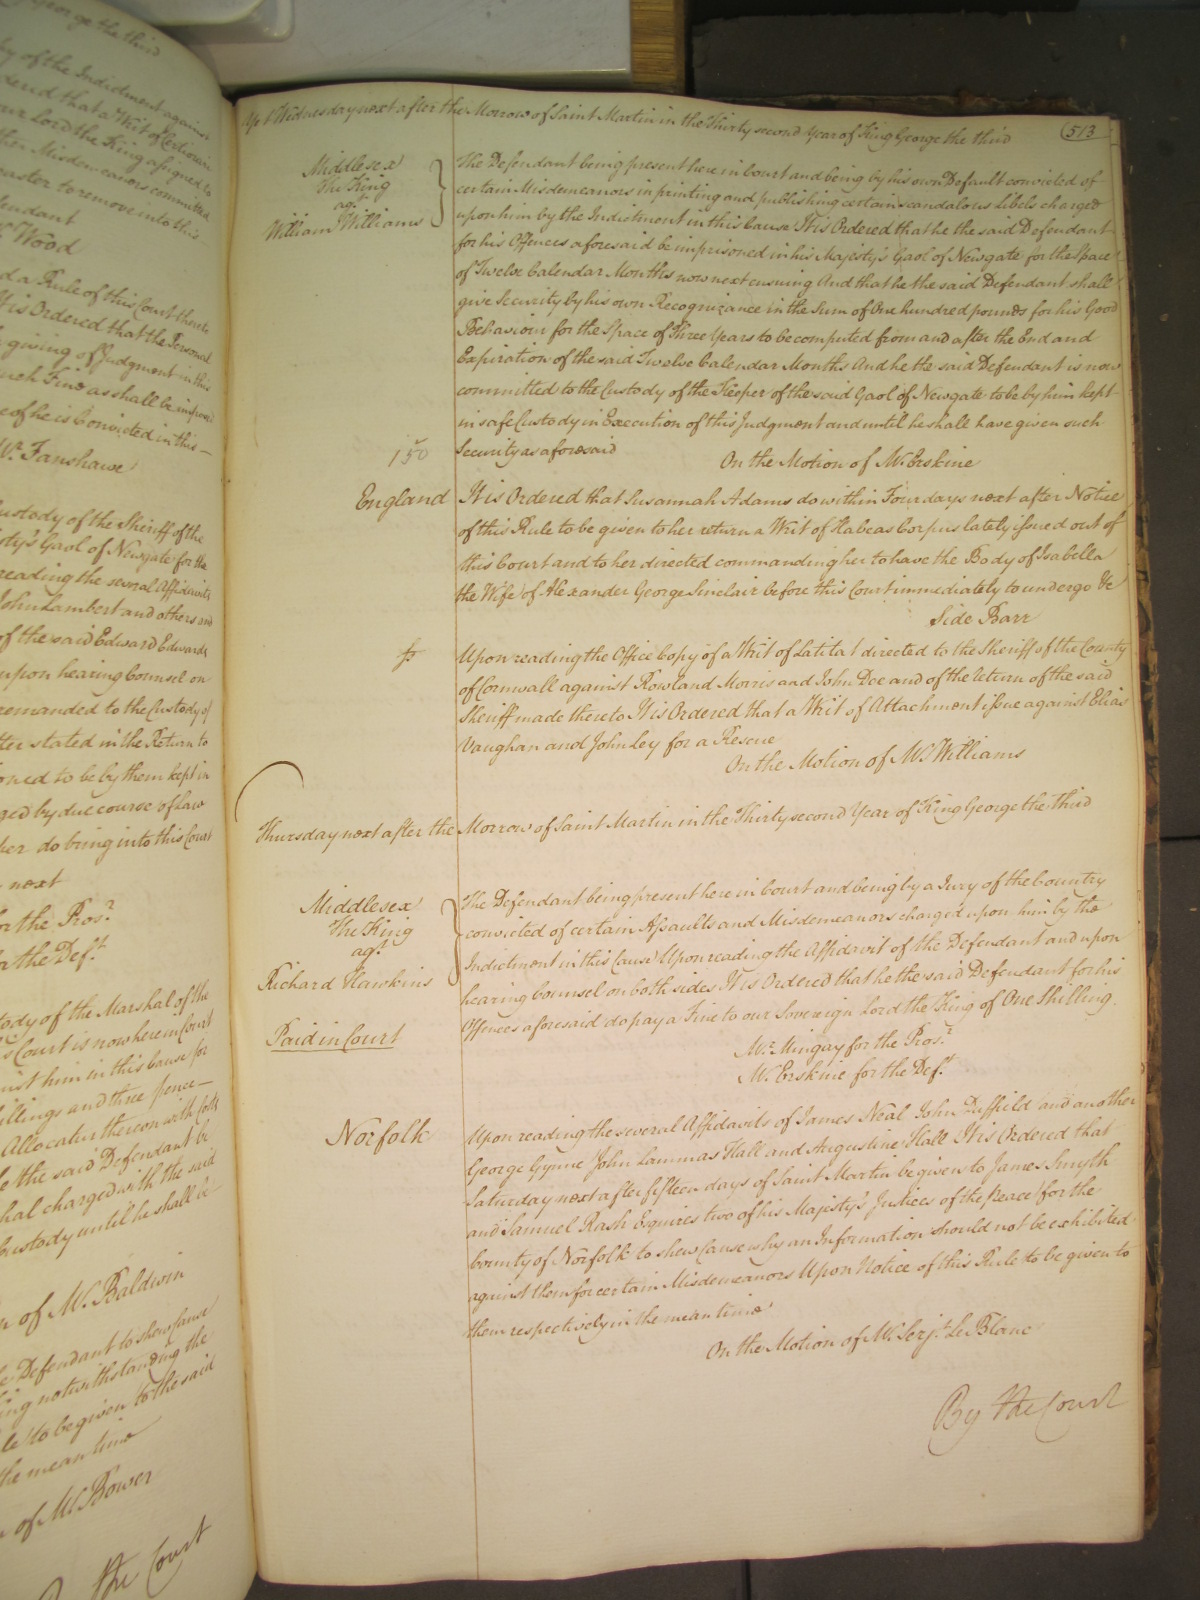 George the third
by of the Indictment against
dered that a Writ of Certiorari
our Lord the King assigned to
other Misdemeanors committed
caster to remove into this
fendant
Wood
d a Rule of this Court
It is Ordered that the Personal
giving of Judgment in this
such Fine as shall be imposed
eof he is Convicted in this
Mr. Fanshawe
Custody of the Sheriff of the
sty's Gaol of Newgate for the
reading the several Affidavits
John Lambert and others and
of the said Edward Edwards
upon hearing Counsel on
remanded to the Custody of
ter stated in the Return to
oned to be by them kept in
ged by due course of Law
ber do bring into this Court
next
or the Pros.r
or the Def.t
tody of the Marshal of the
s Court is now here in Court
inst him in this Cause for
illings and three pence
Allocatur thereon with Costs
e the said Defendant be
hal charged with the said
Custody until he shall be
n of Mr. Baldwin
e Defendant to shew Cause
ing notwithstanding the
le to be given to the said
the mean time
of Mr. Bower
the Court
Yet Wednesday next after the Morrow of Saint Martin in the Thirty second Year of King George the third
513
Middlesex
The King
ag.t
William Williams
The Defendant being present here in Court and being by his own Default convicted of
certain Misdemeanors in printing and publishing certain scandalous Libels charged
upon him by the Indictment in this Cause It is Ordered that he the said Defendant
for his Offences aforesaid be imprisoned in his Majesty's Gaol of Newgate for the Space
of Twelve Calendar Months now next ensuing And that he the said Defendant shall
give Security by his own Recognizance in the Sum of One hundred pounds for his Good
Behaviour for the Space of Three Years to be computed from and after the End and
Expiration of the said Twelve Calendar Months And he the said Defendant is now
committed to the Custody of the Keeper of the said Gaol of Newgate to be by him kept
in safe Custody in Execution of this Judgment and until he shall have given such
Security as aforesaid
150
On the Motion of Mr. Erskine
England
It is Ordered that Susannah Adams do within Four days next after Notice
of this Rule to be given to her return a Writ of Habeas Corpus lately issued out of
this Court and to her directed commanding her to have the Body of Isabella
the Wife of Alexander George Sinclair before this Court immediately to undergo &c
Side Barr
Upon reading the Office Copy of a Writ of Latitat directed to the Sheriff of the County
of Cornwall against Rowland Morris and John Doe and of the Return of the said
Sheriff made thereto It is Ordered that a Writ of Attachment issue against Elias
Vaughan and John Ley for a Rescue
On the Motion of Mr. Williams
Thursday next after the Morrow of Saint Martin in the Thirty second Year of King George the Third
Middlesex
The King
ag.t
Richard Hawkins
The Defendant being present here in Court and being by a Jury of the Country
convicted of certain Assaults and Misdemeanors charged upon him by the
Indictment in this Cause Upon reading the Affidavit of the Defendant and upon
hearing Counsel on both sides It is Ordered that he the said Defendant for his
Offences aforesaid do pay a Fine to our Sovereign Lord the King of One Shilling.
Paid in Court
Mr. Mingay for the Pros.r
Mr. Erskine for the Def.t
Norfolk
Upon reading the several Affidavits of James Neal John Duffield and another
George Gynne John Lammas Hall and Augustine Hall It is Ordered that
Saturday next after fifteen days of Saint Martin be given to James Smyth
and Samuel Rash Esquires two of his Majesty's Justices of the Peace for the
County of Norfolk to shew Cause why an Information should not be exhibited
against them for certain Misdemeanors Upon Notice of this Rule to be given to
them respectively in the mean time
On the Motion of Mr. Serj.t Le Blanc
By the Court